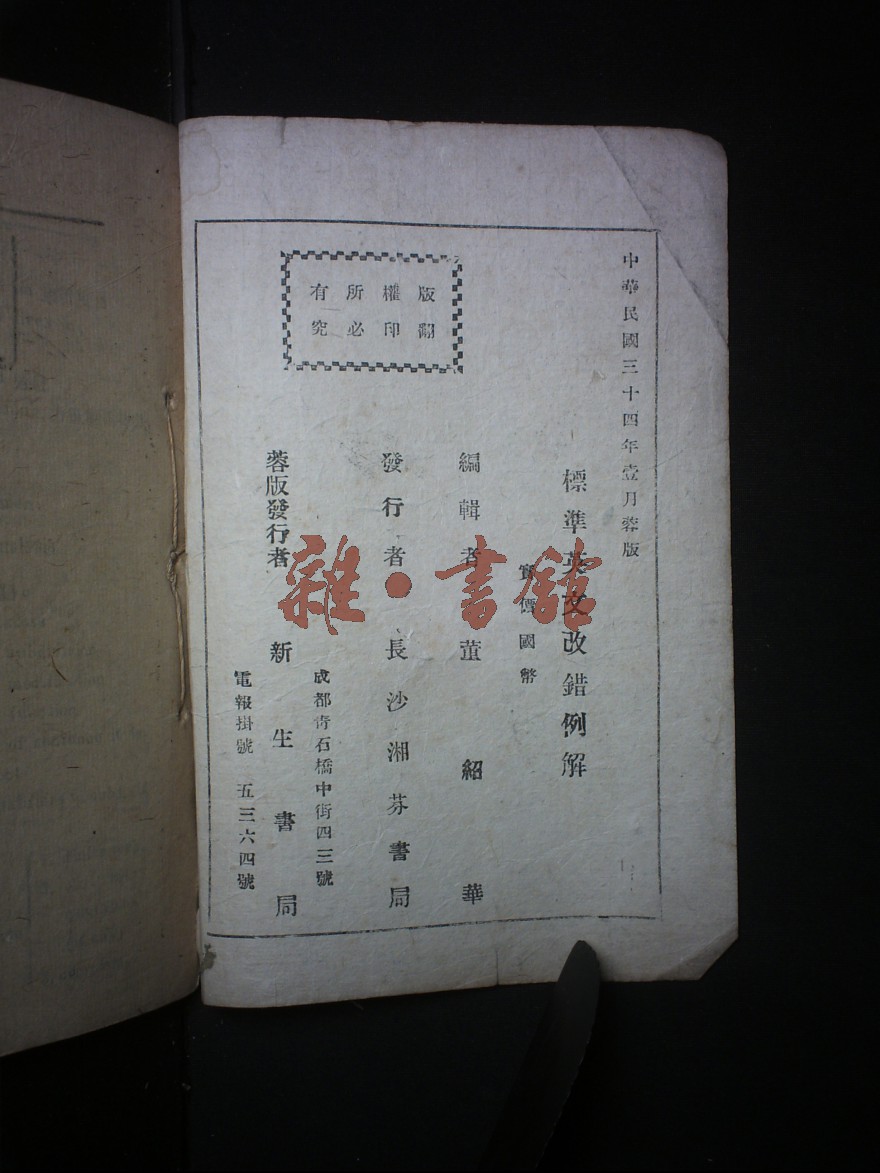 中華民國三十四年壹月蓉版
標準英文改錯例解
實價國幣
編輯者 董紹華
發行者 長沙湘芬書局
成都靑石橋中街四三號
蓉版發行者 新生書局
電報掛號 五三六四號
版權所有
翻印必究
雜·書館